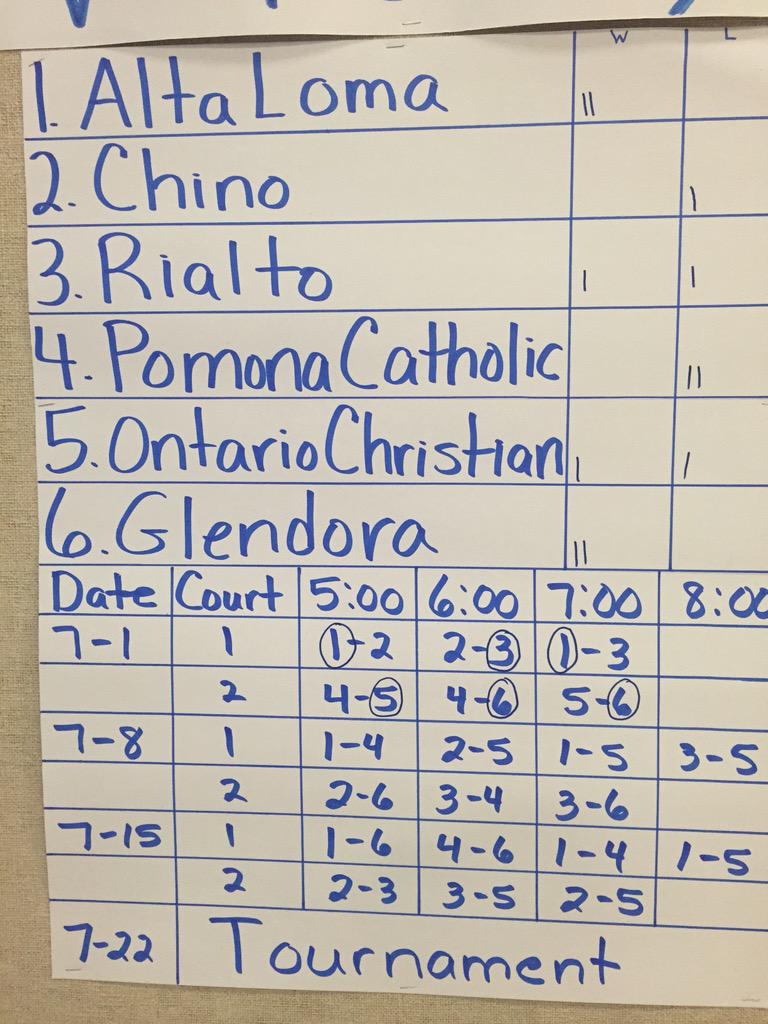 W L
1. Alta Loma II
2. Chino I
3. Rialto I I
4. Pomona Catholic II
5. Ontario Christian I I
6. Glendora II
Date Court 5:00 6:00 7:00 8:00
7-1 1 1-2 2-3 1-3
2 4-5 4-6 5-6
7-8 1 1-4 2-5 1-5 3-5
2 2-6 3-4 3-6
7-15 1 1-6 4-6 1-4 1-5
2 2-3 3-5 2-5
7-22 Tournament